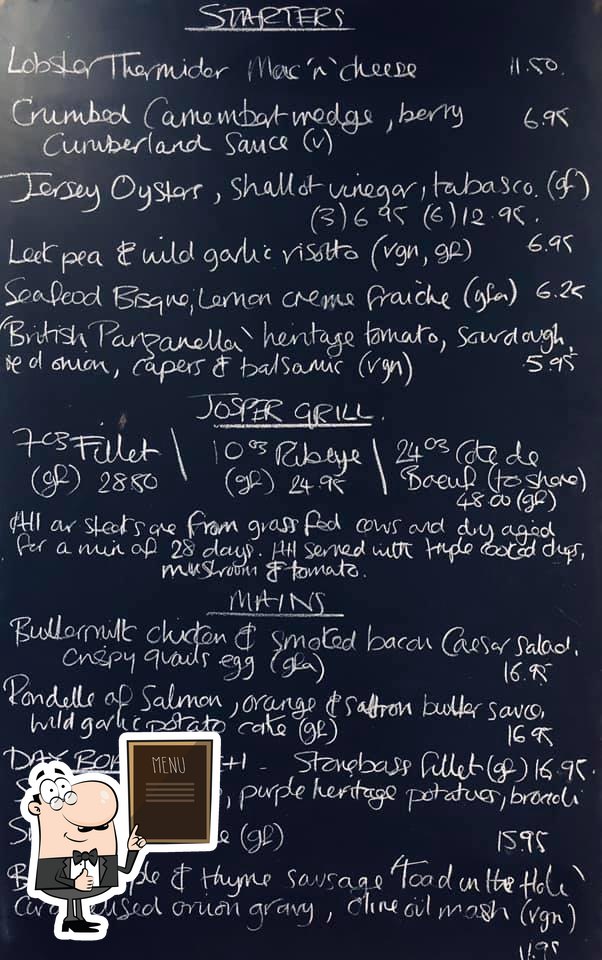 STARTERS
Lobster Thermidor Mac 'n' cheese 11.50.
Crumbed Camembert wedge, berry 6.95
Cumberland Sauce (v)
Jersey Oysters, Shallot vinegar, tabasco. (gf)
(3) 6.95 (6) 12.95.
Leek pea & wild garlic risotto (vgn, gf) 6.95
Seafood Bisque, Lemon creme fraiche (gfa) 6.25
'British Panzanella' heritage tomato, sourdough,
red onion, capers & balsamic (vgn) 5.95
JOSPER GRILL.
7oz Fillet | 10oz Ribeye | 24oz Cote de
(gf) 28.50 (gf) 24.95 Boeuf (to share)
48.00 (gf)
All our steaks are from grass fed cows and dry aged
for a min of 28 days. All served with triple cooked chips,
mushroom & tomato.
MAINS
Buttermilk chicken & smoked bacon Caesar Salad.
crispy quails egg (gfa) 16.95
Rondelle of Salmon, orange & saffron butter sauce,
wild garlic potato cake (gf) 16.95
DAY BOAT - Stonebass fillet (gf) 16.95.
, purple heritage potatoes, broccoli
(gf) 15.95
& thyme sausage 'Toad in the Hole'
onion gravy, olive oil mash (vgn)
11.95
MENU